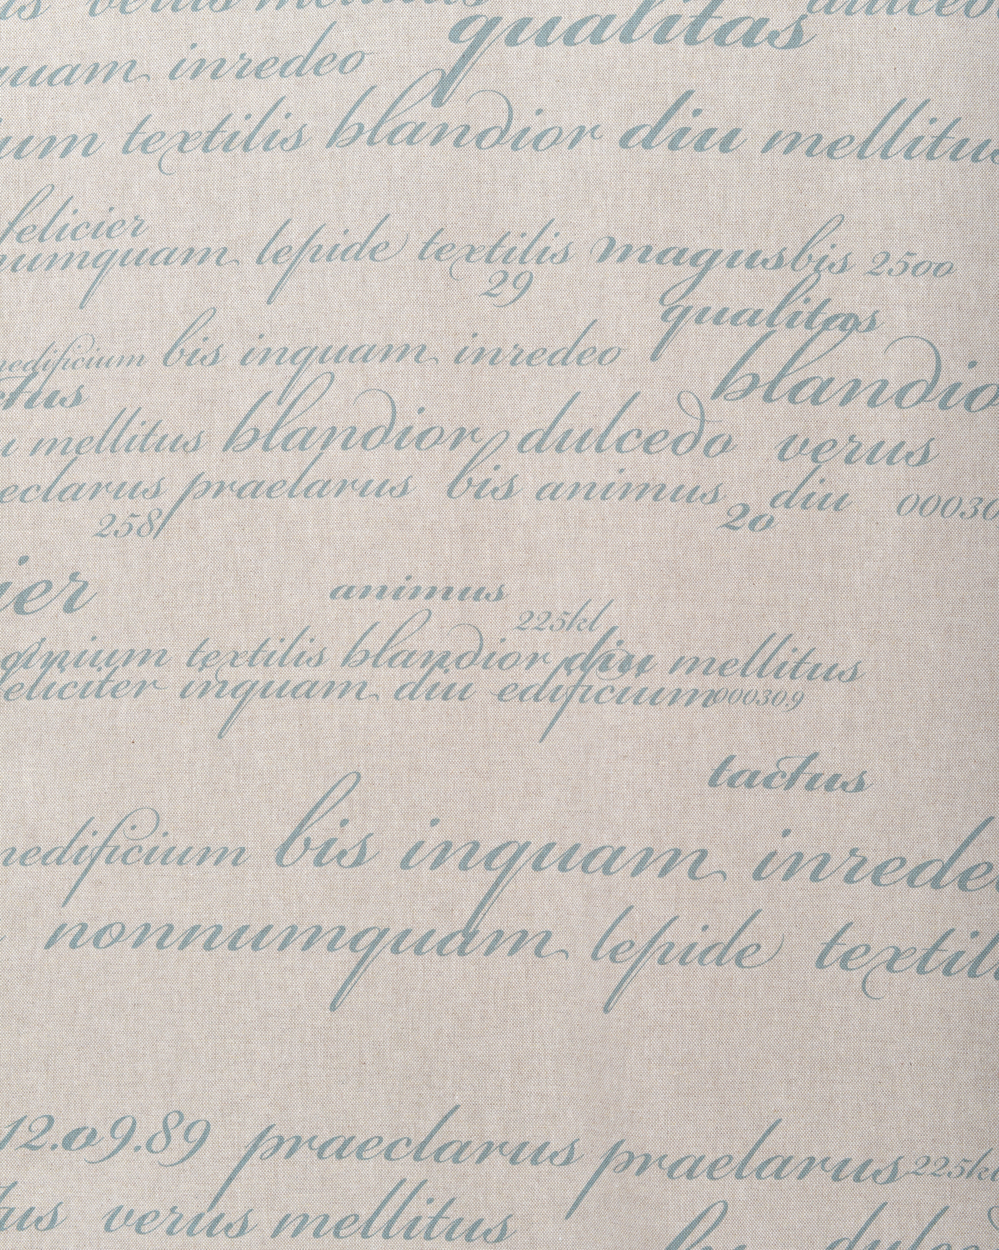 verus mellitus dulcedo
qualitas
quam inredeo
textilis blandior diu mellitus
felicier
numquam lepide textilis magus bis 2500
29
qualitas
edificium bis inquam inredeo
blandio
mellitus blandior dulcedo verus
praelarus bis animus diu 00030
20
258
ier
animus
225kl
textilis blandior diu mellitus
feliciter inquam diu edificium 00030.9
tactus
edificium bis inquam inrede
nonnumquam lepide textil
12.09.89 praeclarus praelarus 225kl
verus mellitus